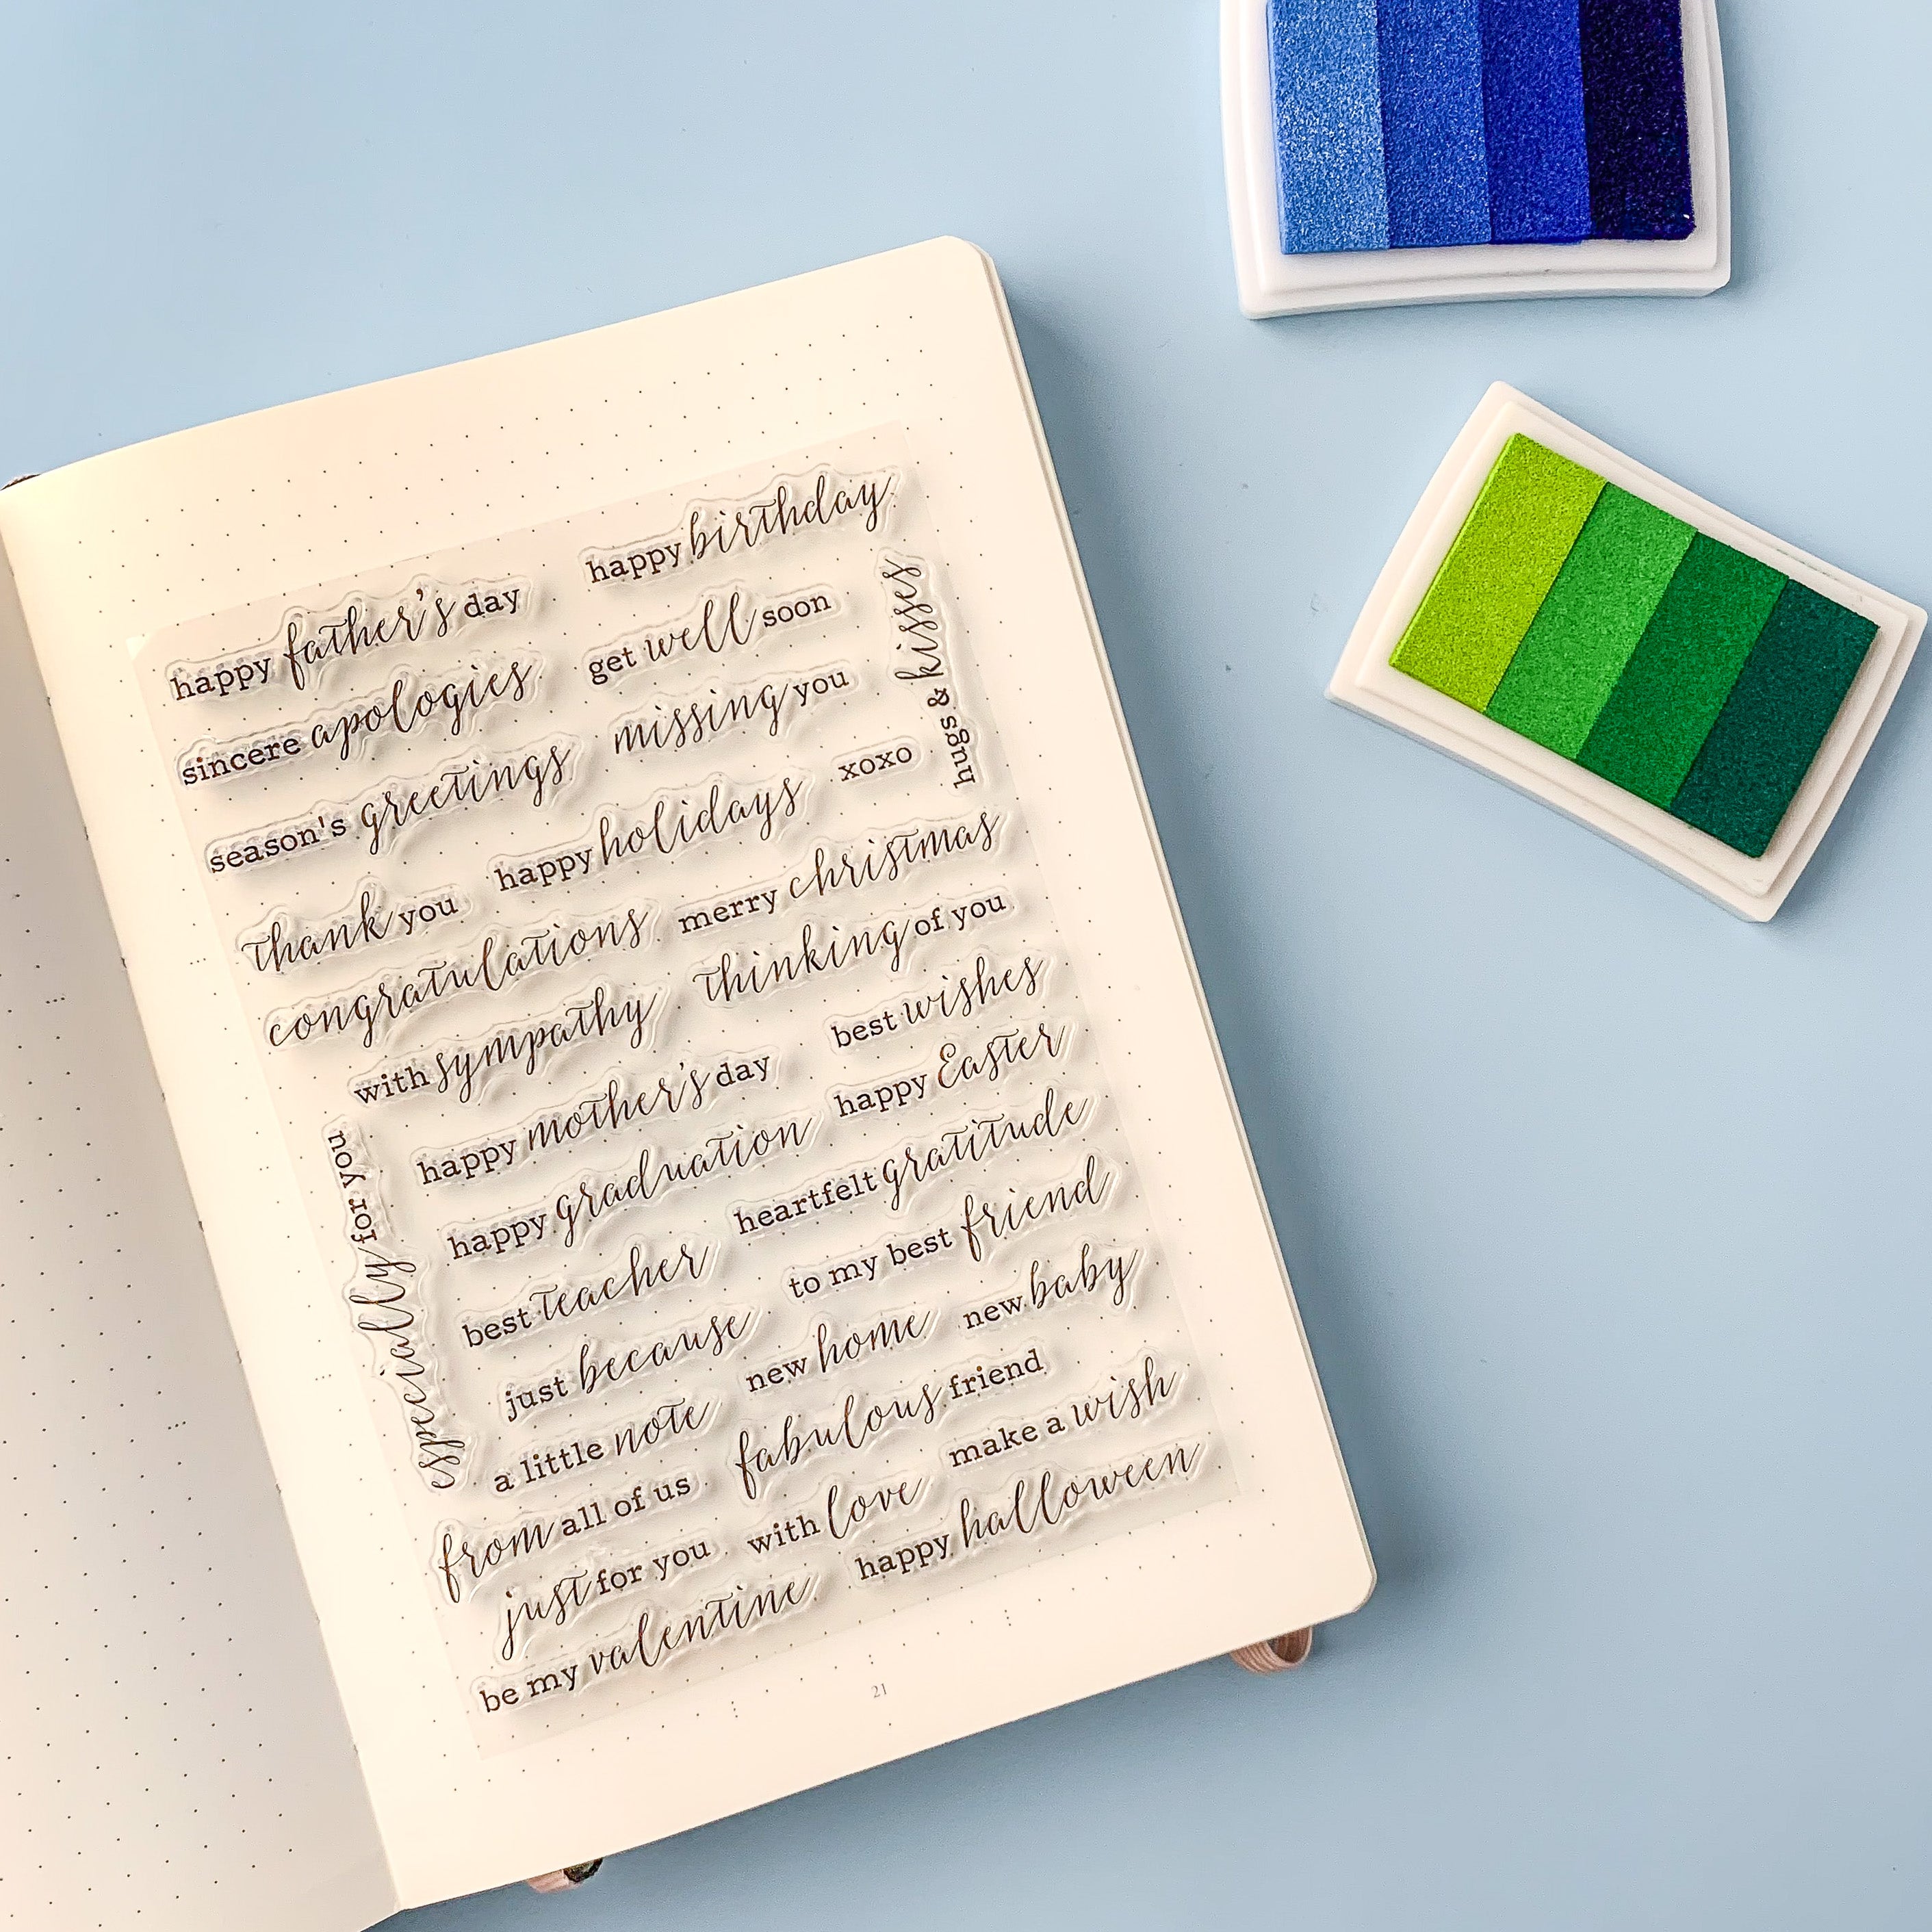 happy birthday
happy father's day
get well soon
hugs & kisses
sincere apologies
missing you
season's greetings
xoxo
happy holidays
thank you
merry christmas
congratulations
thinking of you
with sympathy
best wishes
happy mother's day
happy Easter
especially for you
happy graduation
heartfelt gratitude
best teacher
to my best friend
just because
new home
new baby
a little note
fabulous friend
make a wish
from all of us
with love
just for you
happy halloween
be my valentine
21